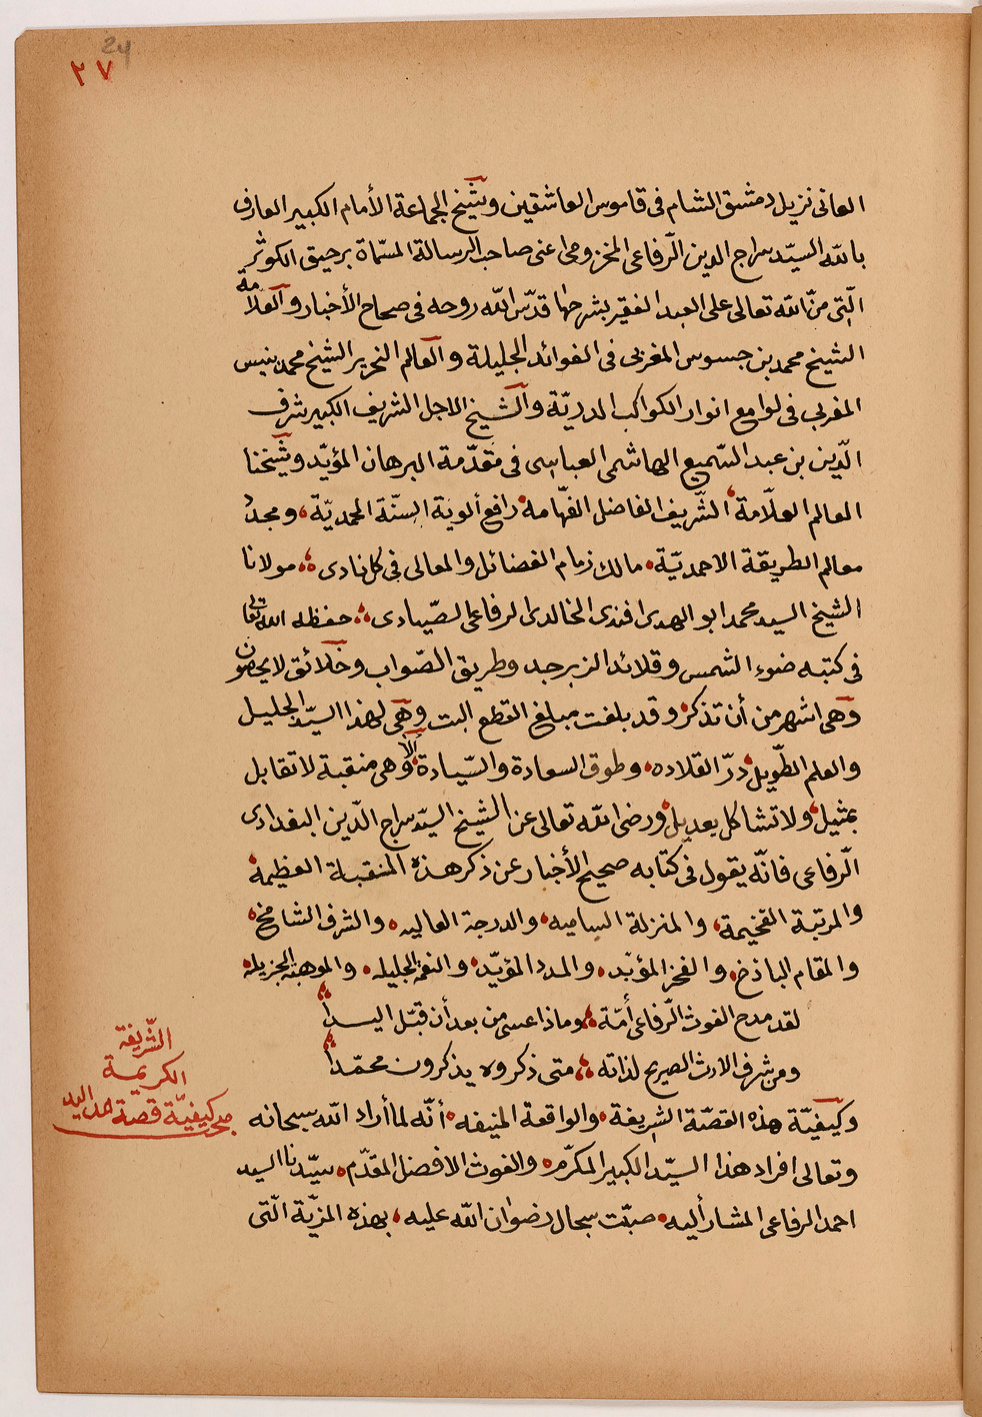 24
٢٧
العانى نزيل دمشق الشام فى قاموس العاشقين وشيخ الجماعة الأمام الكبير العارف
بالله السيّد سراج الدين الرّفاعى المخزومى اعنى صاحب الرسالة المسمّاة برحيق الكوثر
الّتى منّ الله تعالى على العبد الفقير بشرحها قدّس الله روحه فى صحاح الأخبار والعلامة
الشيخ محمد بن جسوس المغربى فى الفوائد الجليلة والعالم النحرير الشيخ محمد بنيس
المغربى فى لوامع انوار الكواكب الدريّة والشيخ الاجل الشريف الكبير شرف
الّدين بن عبد السّميع الهاشمى العباسى فى مقدّمة البرهان المؤيّد وشيخنا
العالم العلّامة، الشّريف الفاضل الفهّامة، رافع ألوية السنّة المحمديّة، ومجددُ
معالم الطريقة الاحمديّة، مالك زمام الفضائل والمعالى فى كل نادى، مولانا
الشيخ السيد محمد ابو الهدى افندى الخالدى الرفاعى الصّيادى، حفظه الله تعالى
فى كتبه ضوء الشمس وقلائد الزبرجد وطريق الصّواب وخلائق لا يحصون
وهى اشهر من أن تذكر، وقد بلغت مبلغ القطع البت وهى لهذا السيّد الجليل
والعلم الطّويل، درّ القلاده، وطوق السعادة والسّيادة، الا وهى منقبة لا تقابل
بمثيل، ولا تشاكل بعديل، ورضى الله تعالى عن الشيخ السيّد سراج الدّين البغدادى
الّرفاعى فانّه يقول فى كتابه صحيح الأخبار عن ذكر هذه المنقبة العظيمة،
والمرتبة الفخيمة، والمنزلة الساميه، والدرجة العاليه، والشرف الشامخ،
والمقام الباذخ، والفخر المؤبّد، والمدد المؤيّد، والنعمة الجليله، والموهبة الجزيله،
لقد مدح الغوث الرّفاعى أمّة، وماذا عسى من بعد أن قبّل اليدا
ومن شرف الارث الصريح لذاته، متى ذكروه يذكرون محمّدا
وكيفيّة هذه القصّة الشريفة، والواقعة المنيفه، أنّه لما أراد الله سبحانه
وتعالى افراد هذا السيّد الكبير المكرّم، والغوث الافضل المقدّم، سيّدنا السيد
احمد الرفاعى المشار أليه، صبّت سجال رضوان الله عليه، بهذه المزيّة الّتى
الشّريفة
الكريمة
كيفيّة قصة مد اليد